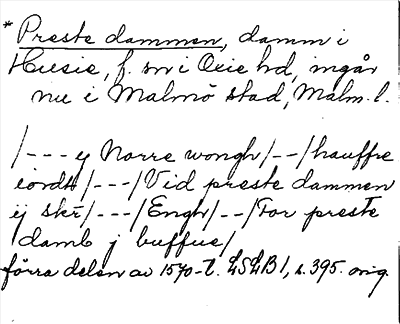 * Preste dammen, damm i
Husie, f. sn i Oxie hd, ingår
nu i Malmö stad, Malm. l.
/---ij Norre wongh/--/hauffre
iordt/---/Vid preste dammen
ij skr/---/Engh/--/For preste
damb j buffue/
förra delen av 1570-t. LSLB 1, s. 395. orig.